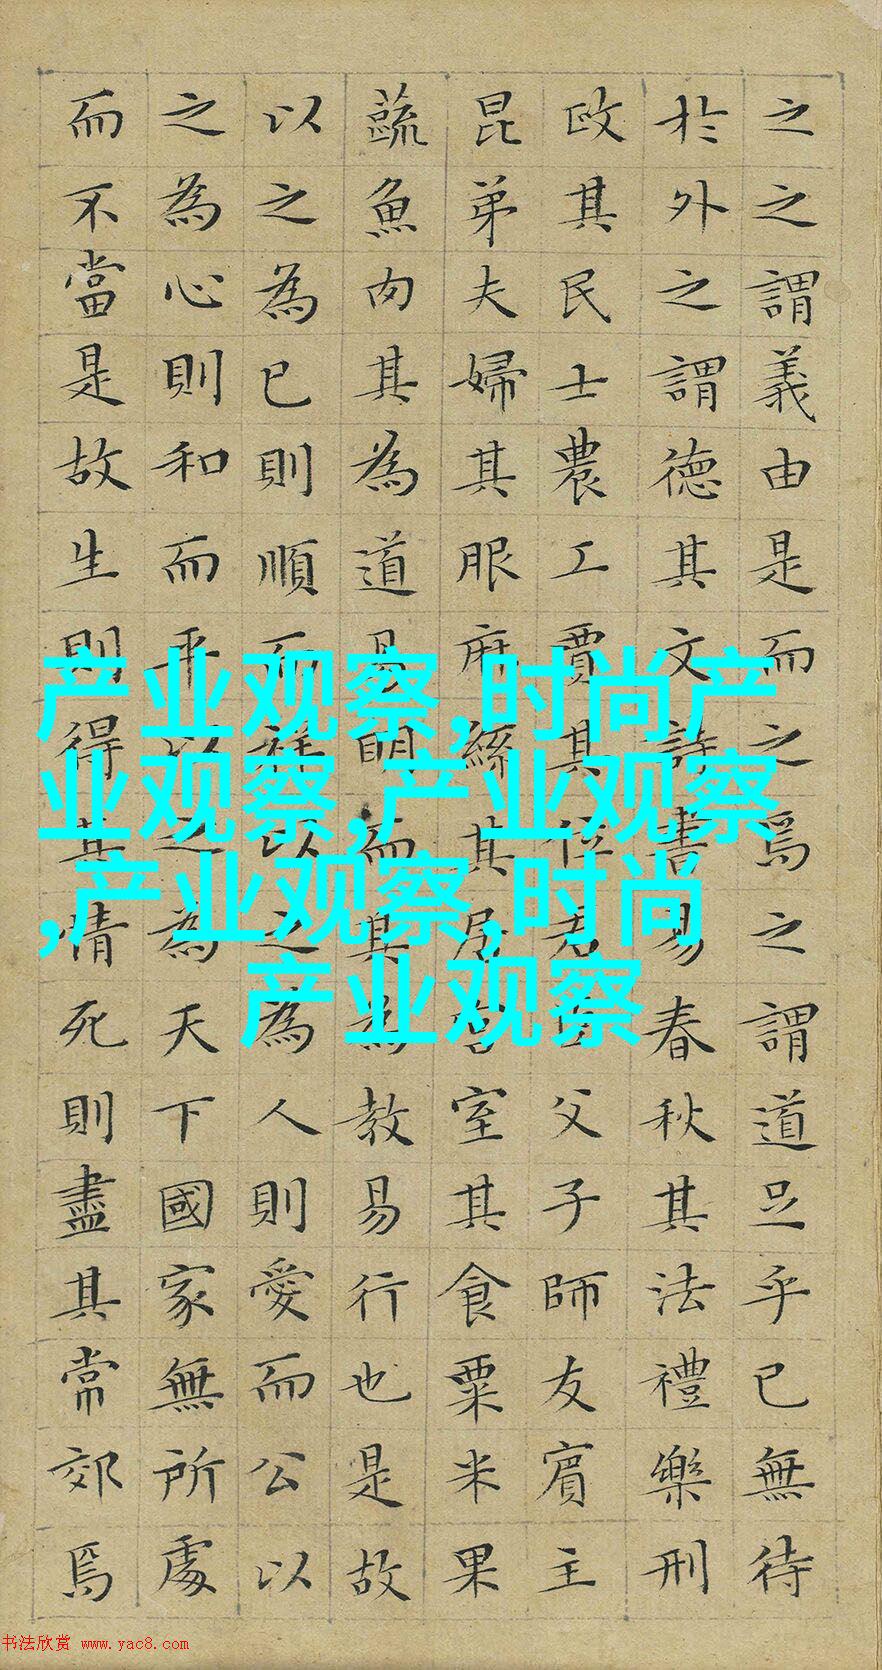 之之謂義由是而之焉之謂道足乎已無待
於外之謂德其文詩書易春秋其法禮樂刑
政其民士農工賈其位君臣父子師友賓主
昆弟夫婦其服麻絲其居宮室其食粟米果
蔬魚肉其為道易明而其為教易行也是故
以之為已則順而祥以之為人則愛而公以
之為心則和而平以之為天下國家無所處
而不當是故生則得其情死則盡其常郊焉
产业观察,时尚产
业观察,产业观察
,产业观察,时尚
产业观察
书法欣赏 www.yac8.com